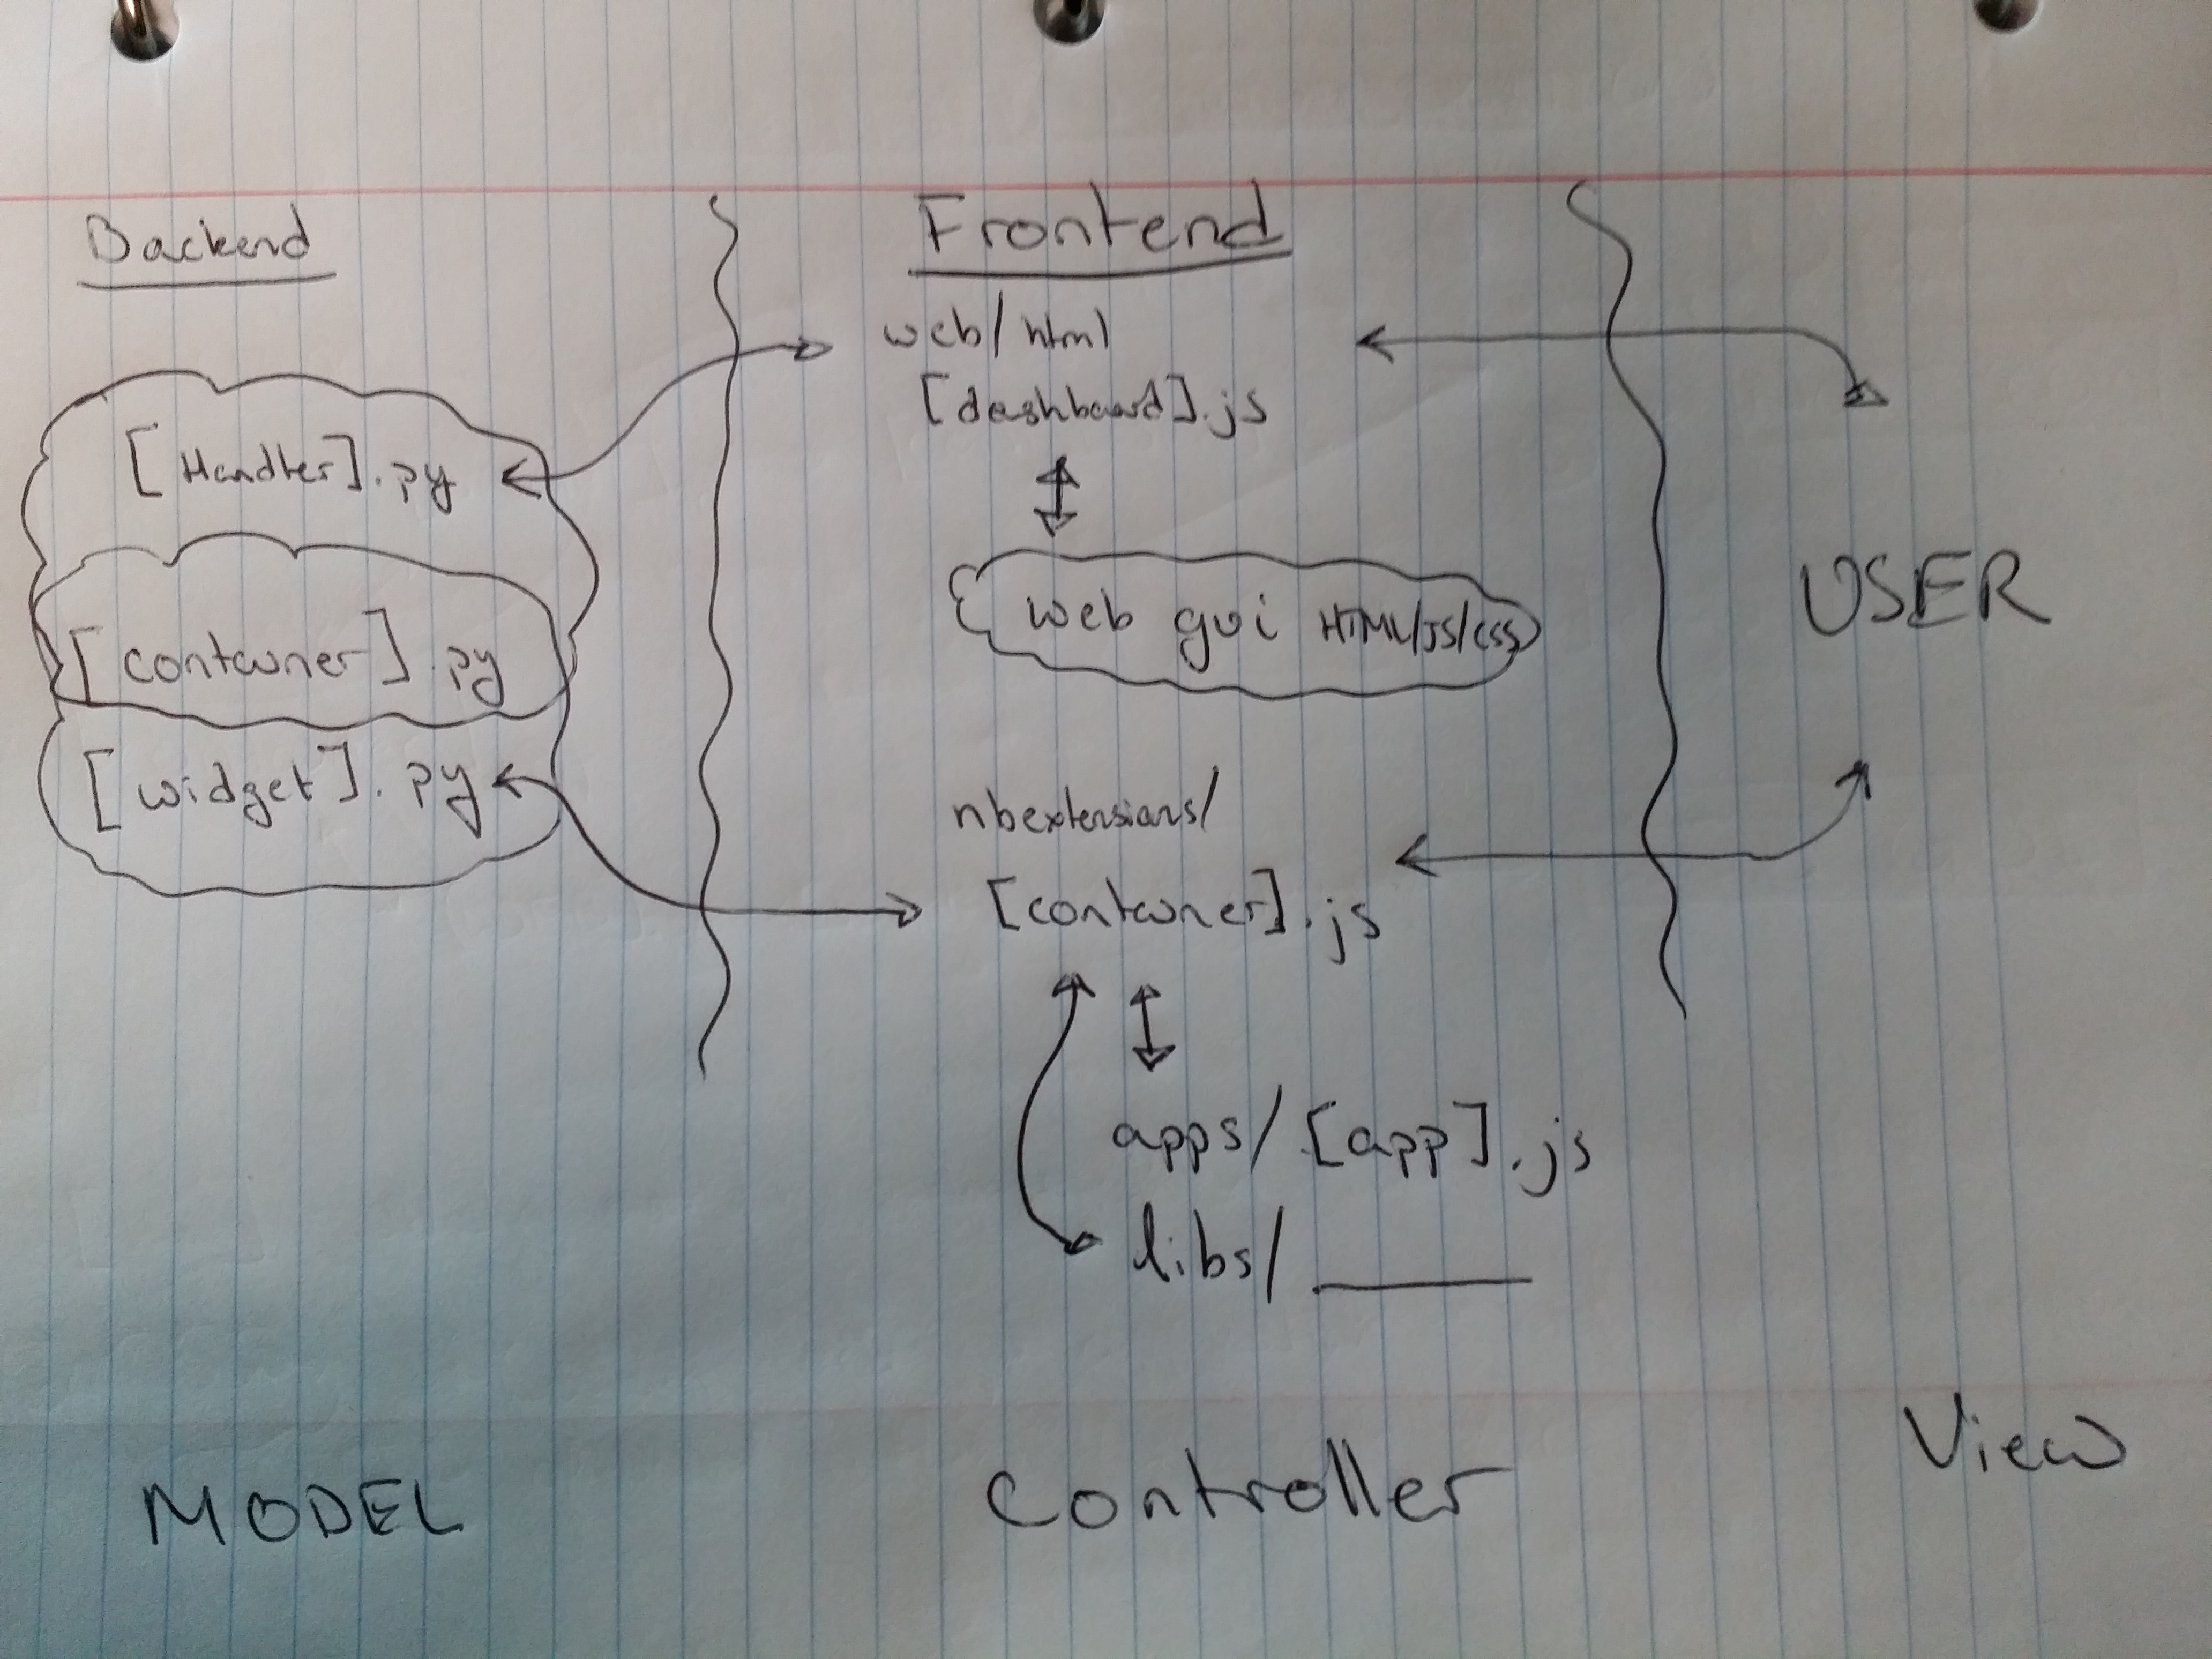 Backend
[Handler].py
[container].py
[widget].py
MODEL
Frontend
web/html
[dashboard].js
web gui HTML/JS/CSS
nbextensions/
[container].js
apps/[app].js
libs/
Controller
USER
View